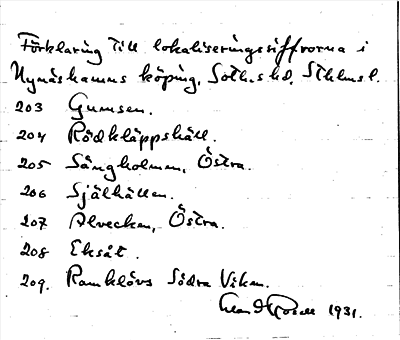 Förklaring till lokaliseringssiffrorna i
Nynäshamns köping, Soth.s hd, Sthlms l.
203 Gumsen.
204 Rödkläppshäll.
205 Sångholmen, Östra.
206 Själhällen.
207 Alvecken, Östra.
208 Eksåt.
209. Ramklövs Södra Viken.
1931.